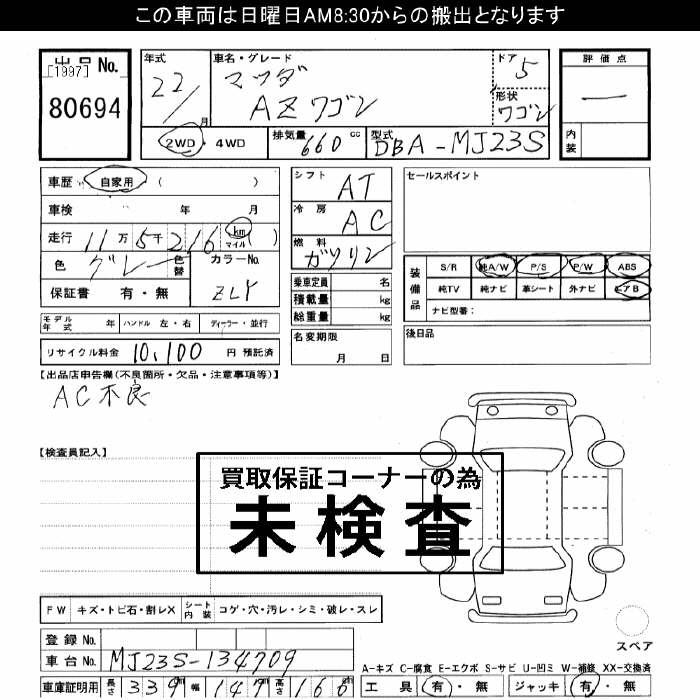 この車両は日曜日AM8:30からの搬出となります
出品No.
[1997]
80694
年式 22/ 月
車名・グレード マツダ AZワゴン
ドア 5
形状 ワゴン
評価点 ―
内装
2WD・4WD
排気量 660 cc
型式 DBA-MJ23S
車歴 自家用 ( )
車検 年 月
走行 11万5千216 km マイル ( )
色 グレー 色替
カラーNo. ZLY
保証書 有・無
シフト AT
冷房 AC
燃料 ガソリン
乗車定員 名
積載量 kg
総重量 kg
セールスポイント
装備品
S/R 純A/W P/S P/W ABS
純TV 純ナビ 革シート 外ナビ エアB
ナビ型番:
モデル年式 年 ハンドル 左・右 ディーラー・並行
名変期限 月 日
後日品
リサイクル料金 10,100 円 預託済
【出品店申告欄(不良箇所・欠品・注意事項等)】
AC不良
【検査員記入】
買取保証コーナーの為
未検査
FW キズ・トビ石・割レX シート内装 コゲ・穴・汚レ・シミ・破レ・スレ
登録No.
車台No. MJ23S-134709
スペア
A-キズ C-腐食 E-エクボ S-サビ U-凹ミ W-補修 XX-交換済
車庫証明用 長さ 339 幅 147 高さ 166
工具 有・無 ジャッキ 有・無